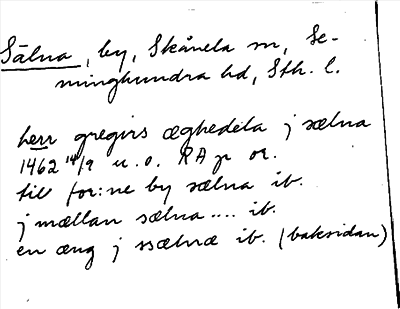 Sälna, by, Skånela sn, Se-
minghundra hd, Sth. l.
herr gregirs æghedela j sælna
1462 14/9 u. o. RA p or.
till for:ne by sælna ib.
j mællan sælna.... ib.
en æng j ssælnæ ib. (baksidan)